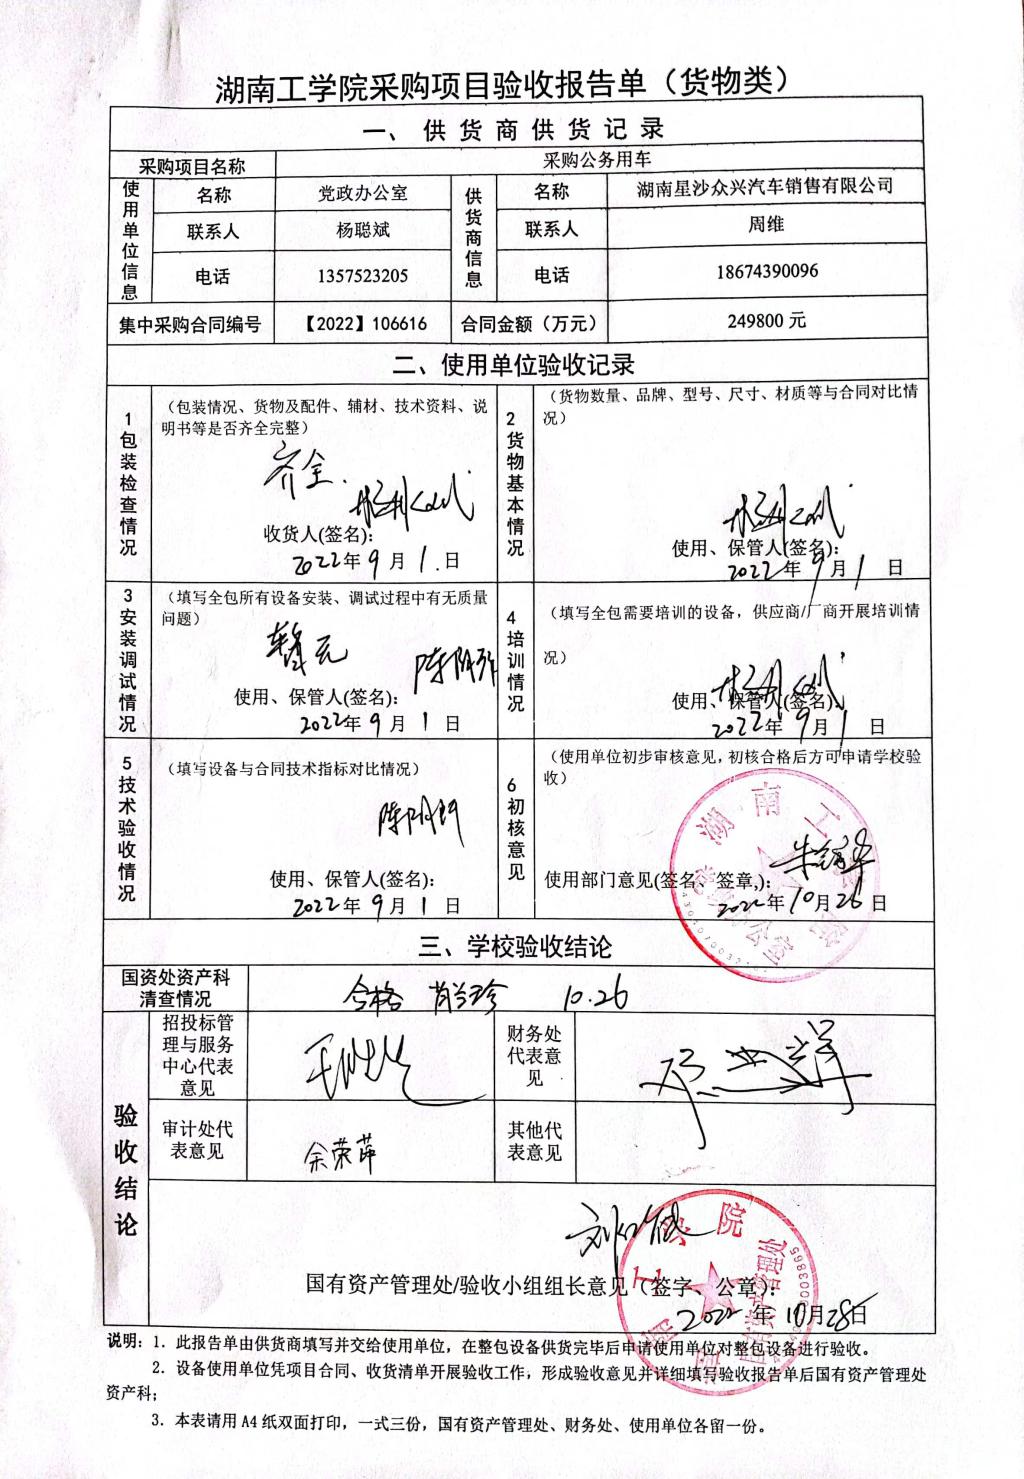 湖南工学院采购项目验收报告单（货物类）
一、供货商供货记录
采购项目名称
采购公务用车
使用单位信息
名称
党政办公室
供货商信息
名称
湖南星沙众兴汽车销售有限公司
联系人
杨聪斌
联系人
周维
电话
1357523205
电话
18674390096
集中采购合同编号
【2022】106616
合同金额（万元）
249800 元
二、使用单位验收记录
1包装检查情况
（包装情况、货物及配件、辅材、技术资料、说
明书等是否齐全完整）
齐全.
收货人(签名):
2022年9月1.日
2货物基本情况
（货物数量、品牌、型号、尺寸、材质等与合同对比情
况）
使用、保管人(签名):
2022年9月1日
3安装调试情况
（填写全包所有设备安装、调试过程中有无质量
问题）
使用、保管人(签名):
2022年9月1日
4培训情况
（填写全包需要培训的设备，供应商/厂商开展培训情
况）
使用、保管人(签名):
2022年9月1日
5技术验收情况
（填写设备与合同技术指标对比情况）
使用、保管人(签名):
2022年9月1日
6初核意见
（使用单位初步审核意见，初核合格后方可申请学校验
收）
使用部门意见(签名、签章,):
2022年10月26日
三、学校验收结论
国资处资产科
清查情况
合格 肖兰珍 10.26
验收结论
招投标管
理与服务
中心代表
意见
财务处
代表意
见
审计处代
表意见
余荣萍
其他代
表意见
国有资产管理处/验收小组组长意见（签字、公章）:
2022年10月28日
说明: 1. 此报告单由供货商填写并交给使用单位，在整包设备供货完毕后申请使用单位对整包设备进行验收。
2. 设备使用单位凭项目合同、收货清单开展验收工作，形成验收意见并详细填写验收报告单后国有资产管理处
资产科；
3. 本表请用 A4 纸双面打印，一式三份，国有资产管理处、财务处、使用单位各留一份。